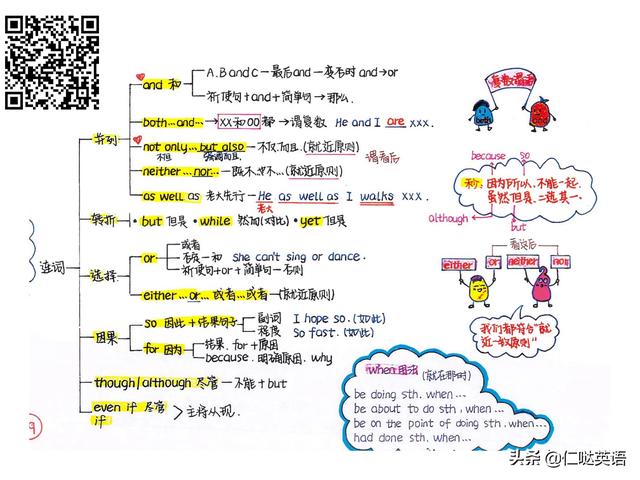 连词
并列
and 和
A.B and C — 最后and — 变否时 and→or
祈使句+and+简单句→那么.
both...and...→XX和OO都→谓复数 He and I are xxx.
not only...but also — 不仅而且.(就近原则)
neither...nor... — 既不..也不...(就近原则)
谓看后
as well as 老大先行 — He as well as I walks xxx.
老大
转折
·but 但是 ·while 然而(对比) ·yet 但是
选择
or
或者
否定—和 she can't sing or dance.
祈使句+or+简单句—否则
either...or...或者...或者 — (就近原则)
因果
so 因此+结果句子
副词 I hope so.(如此)
程度 So fast.(如此)
for 因为
结果, for+原因
because. 明确原因. why
though/although 尽管 — 不能+but
even if 尽管
if
主将从现.
9
谓复数
both
and
because
so
因为所以,不能一起.
虽然但是.二选其一.
although
but
看说后
either
or
neither
nor
我们都符合"就
近一致原则"
when用法(就在那时)
be doing sth. when...
be about to do sth, when...
be on the point of doing sth, when...
had done sth. when...
头条 @仁哒英语